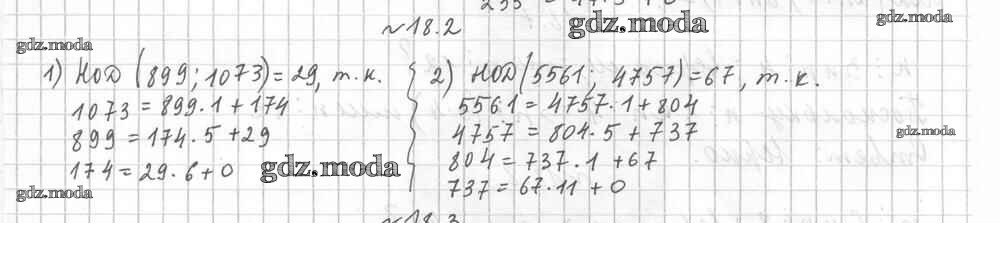 №18.2
gdz.moda
gdz.moda
gdz.moda
1) НОД (899; 1073)=29, т.к.
1073 = 899·1 + 174
899 = 174·5 + 29
174 = 29·6 + 0
gdz.moda
gdz.moda
2) НОД (5561; 4757)=67, т.к.
5561 = 4757·1 + 804
4757 = 804·5 + 737
804 = 737·1 + 67
737 = 67·11 + 0
gdz.moda
№18.3